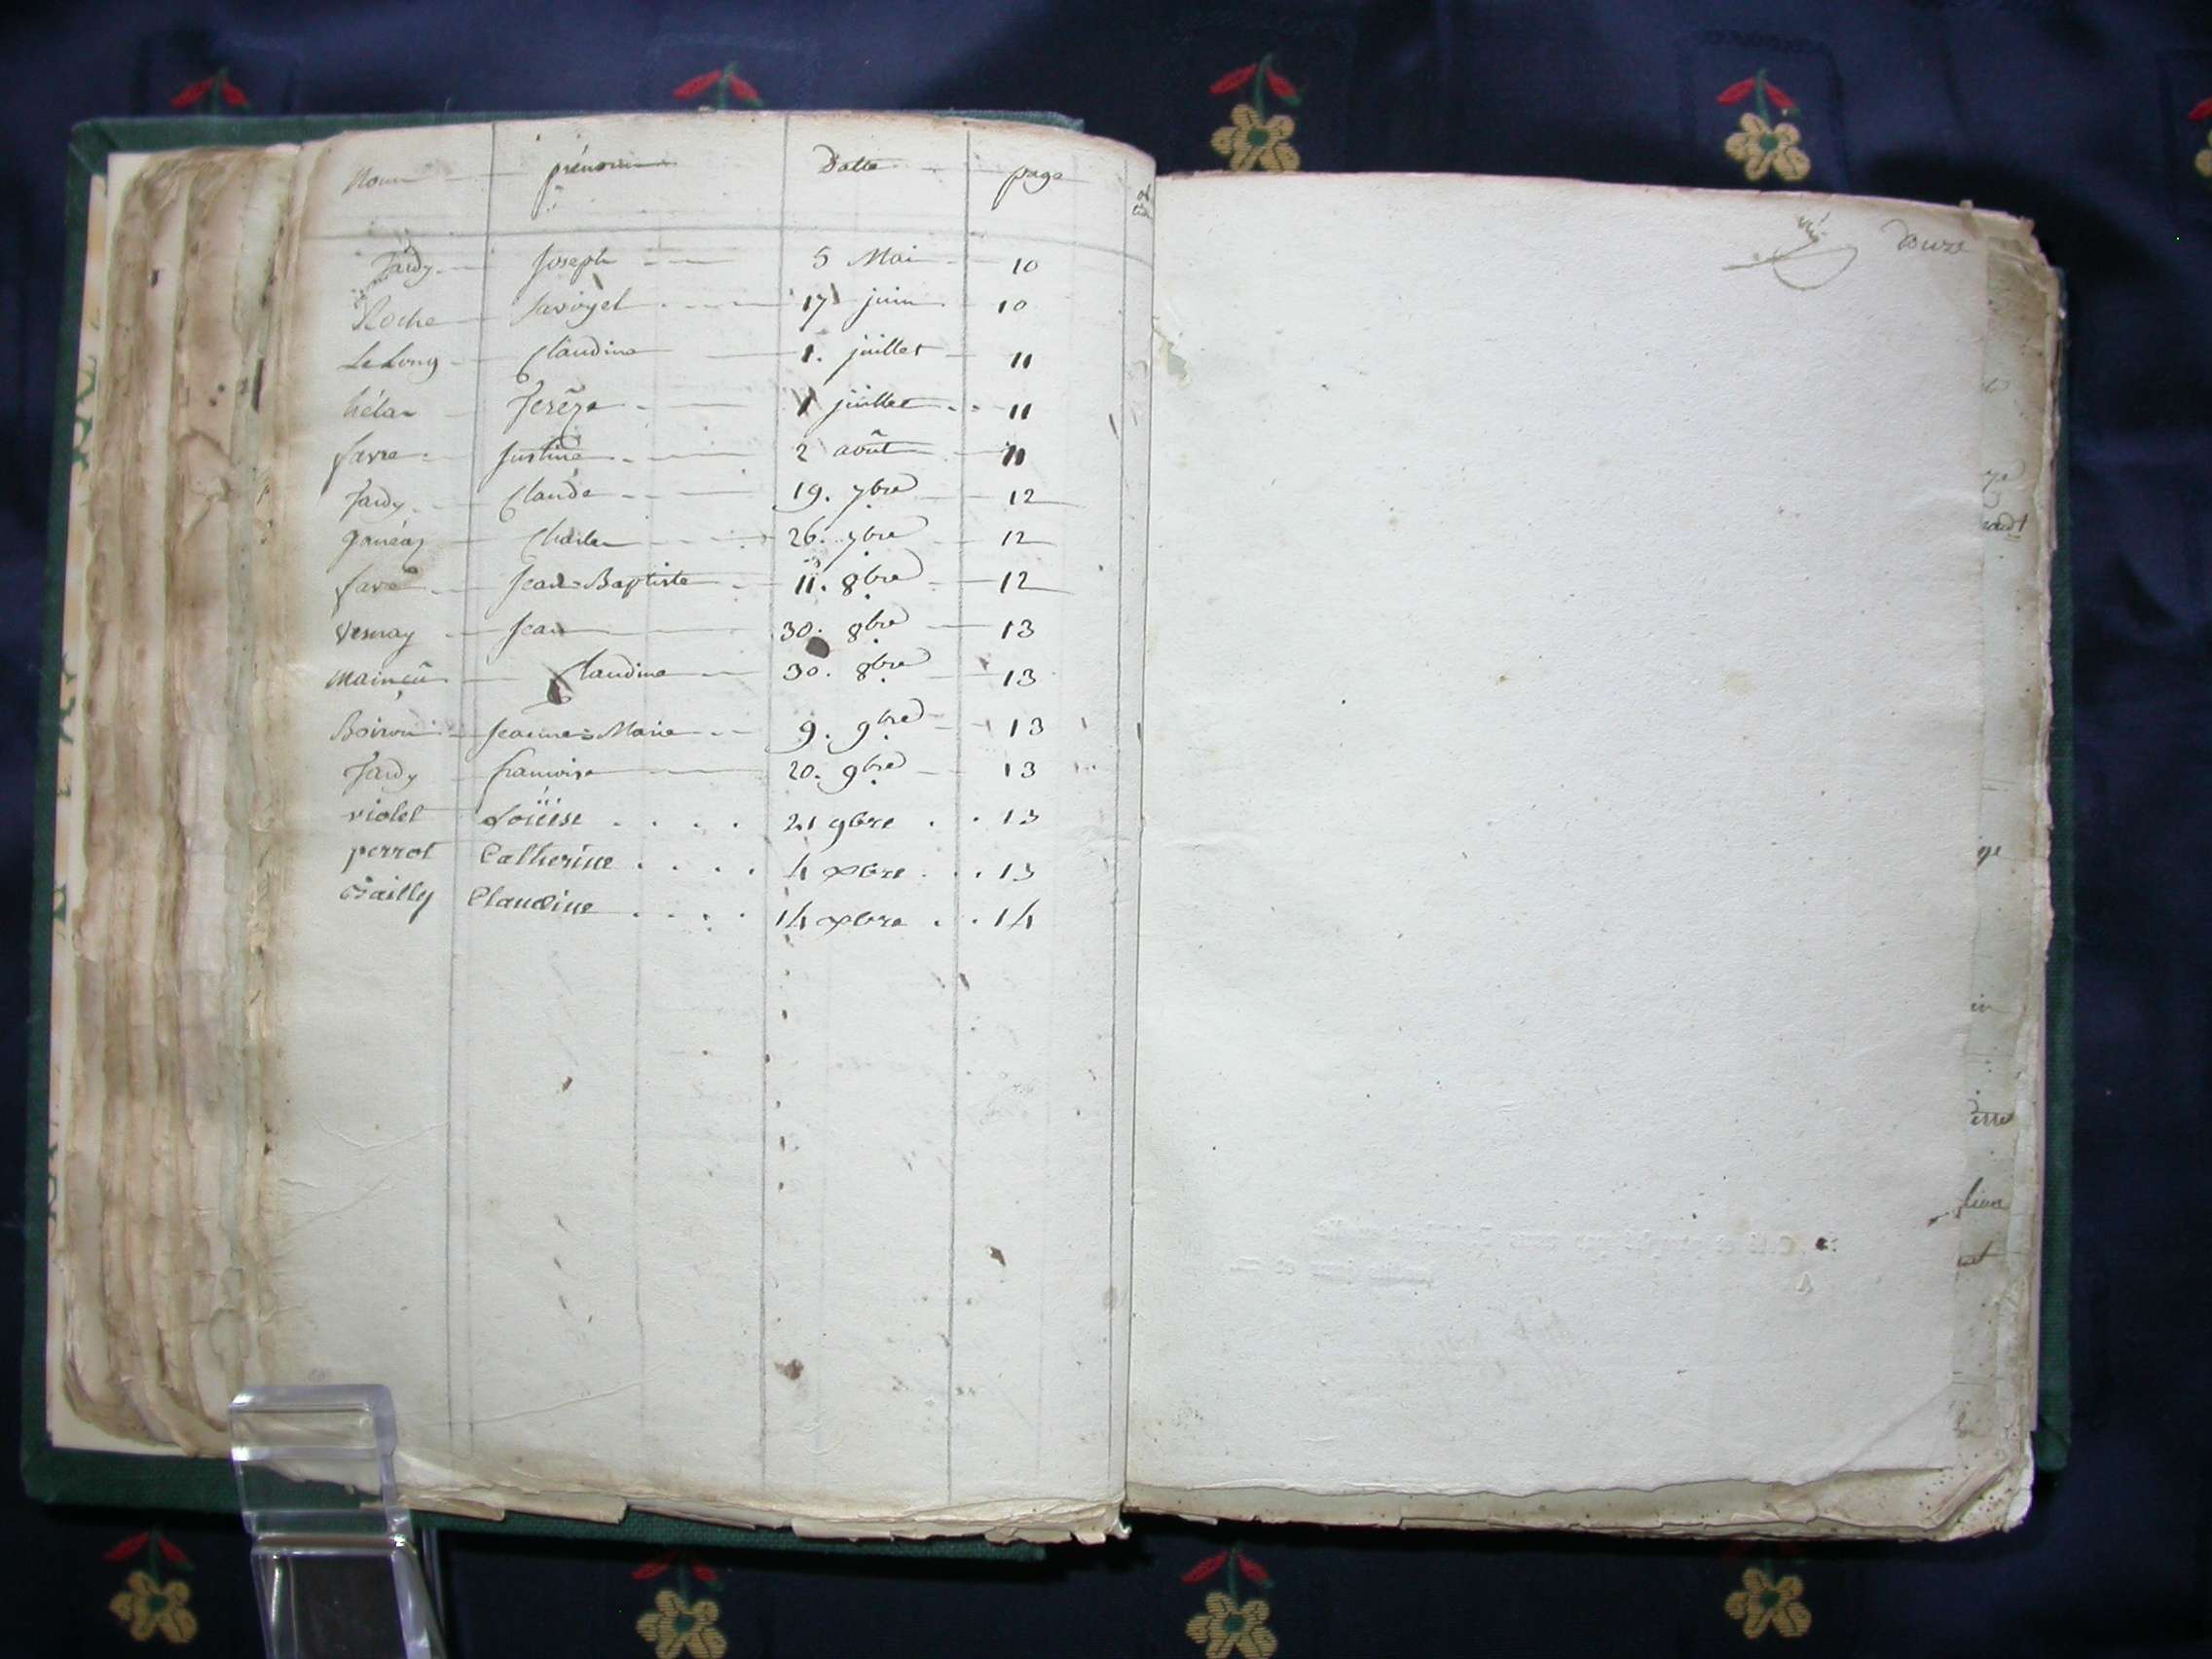 Nom prénom Datte page
Tardy Joseph 5 Mai 10
Roche 17 juin 10
LeLong Claudine 1. juillet 11
hélar 1 juillet 11
favre Justine 2 août 11
Tardy Claude 19. 7bre 12
Charles 26. 7bre 12
favre Jean=Baptiste 11. 8bre 12
Vernay Jean 30. 8bre 13
Claudine 30. 8bre 13
Boiron Jeanne=Marie 9. 9bre 13
Tardy francoise 20. 9bre 13
violet Loüise 21 9bre 13
perrot Catherine 4 xbre 13
Bailly Claudine 14 xbre 14
douze